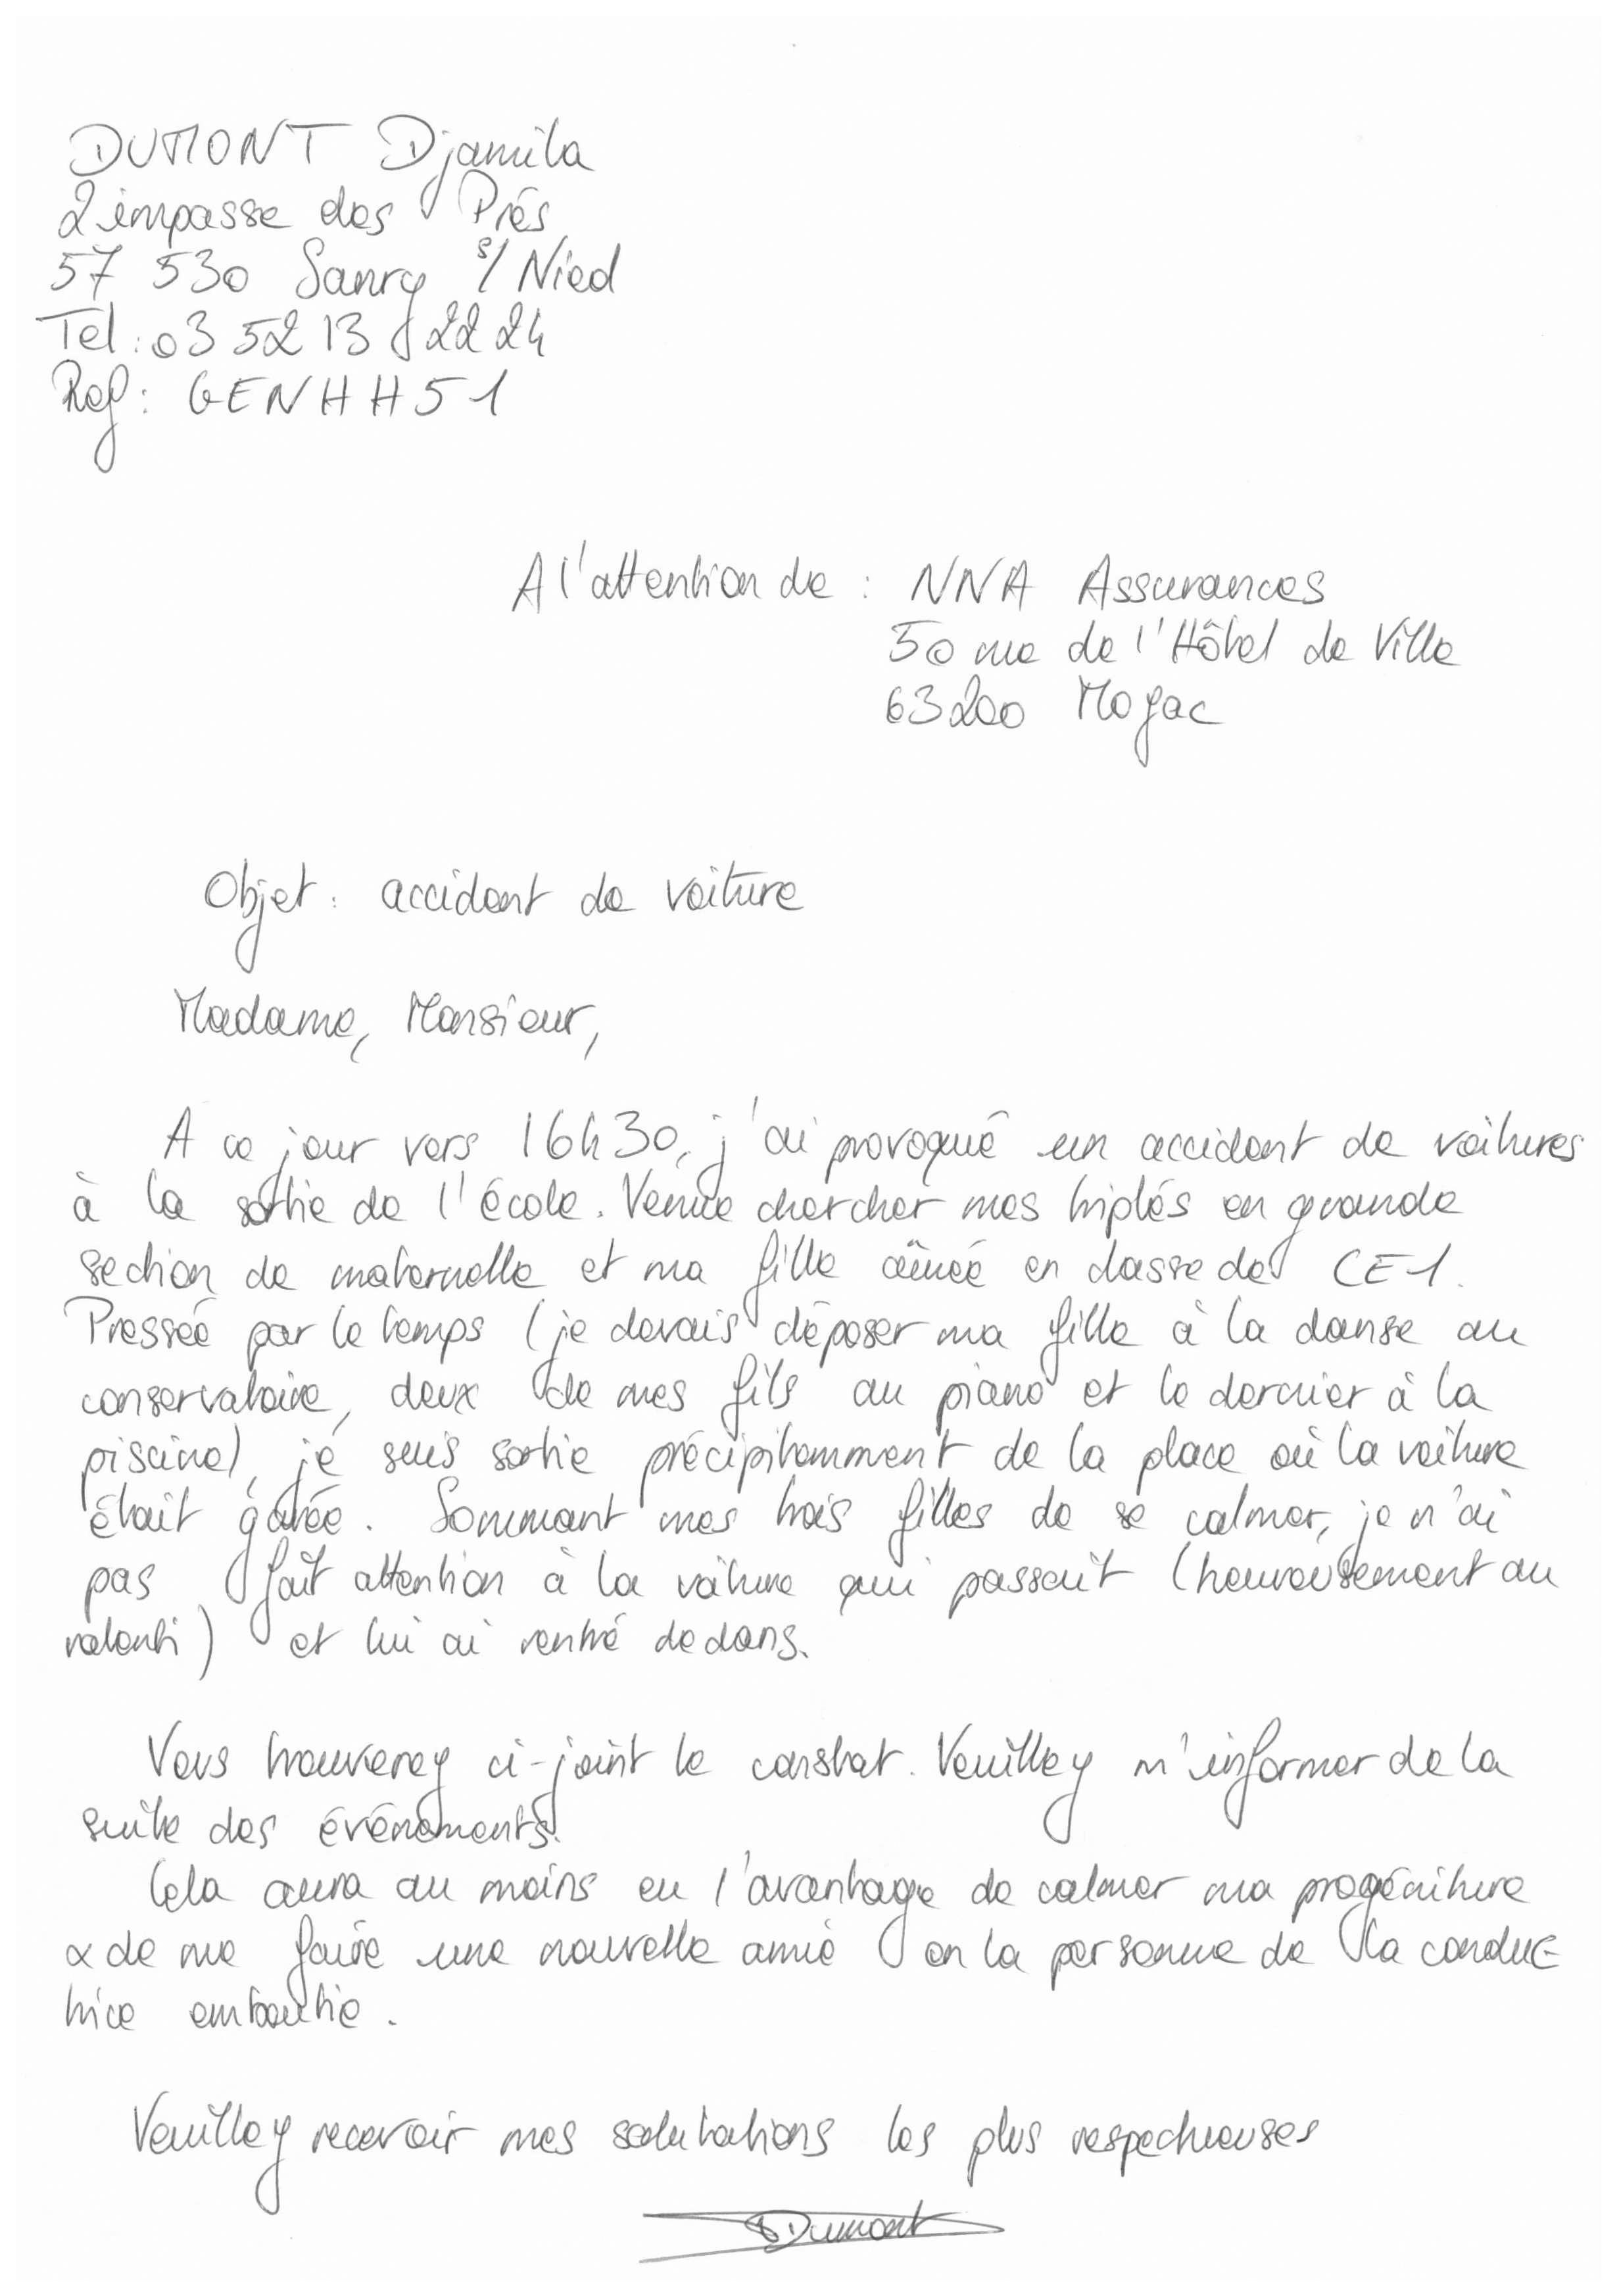 DUMONT Djamila
2 impasse des Prés
57 530 Sanry s/ Nied
Tel : 03 52 13 22 24
Ref : GENHH51
A l'attention de : NNA Assurances
50 rue de l'Hôtel de Ville
63200 Mozac
Objet : accident de voiture
Madame, Monsieur,
A ce jour vers 16h30, j'ai provoqué un accident de voitures
à la sortie de l'école. Venue chercher mes triplés en grande
section de maternelle et ma fille aînée en classe de CE1.
Pressée par le temps (je devais déposer ma fille à la danse au
conservatoire, deux de mes fils au piano et le dernier à la
piscine), je suis sortie précipitamment de la place où la voiture
était garée. Sommant mes trois filles de se calmer, je n'ai
pas fait attention à la voiture qui passait (heureusement au
ralenti) et lui ai rentré dedans.
Vous trouverez ci-joint le constat. Veuillez m'informer de la
suite des événements.
Cela aura au moins eu l'avantage de calmer ma progéniture
& de me faire une nouvelle amie en la personne de la conduc
trice emboutie.
Veuillez recevoir mes salutations les plus respectueuses
DDumont